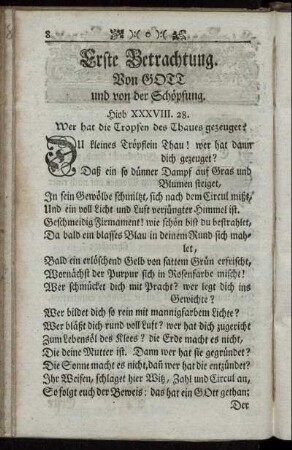 8
Erste Betrachtung.
Von GOTT
und von der Schöpfung.
Hiob XXXVIII. 28.
Wer hat die Tropfen des Thaues gezeuget?
DU kleines Tröpflein Thau! wer hat dann
dich gezeuget?
Daß ein so dünner Dampf auf Gras und
Blumen steiget,
In sein Gewölbe schmilzt, sich nach dem Circul mißt,
Und ein voll Licht und Luft verjüngter Himmel ist.
Geschmeidig Firmament! wie schön bist du bestrahlet,
Da bald ein blasses Blau in deinem Rund sich mah-
let,
Bald ein erlöschend Gelb von sattem Grün erfrischt,
Wornächst der Purpur sich in Rosenfarbe mischt!
Wer schmücket dich mit Pracht? wer legt dich ins
Gewichte?
Wer bildet dich so rein mit mannigfarbem Lichte?
Wer bläßt dich rund voll Luft? wer hat dich zugericht
Zum Lebensöl des Klees? die Erde macht es nicht,
Die deine Mutter ist. Dann wer hat sie gegründet?
Die Sonne macht es nicht, dañ wer hat die entzündet?
Ihr Weisen, schlaget hier Witz, Zahl und Circul an,
So folgt euch der Beweis: das hat ein GOtt gethan;
Der